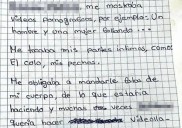 me mostraba
Videos pornograficos, por ejemplo: Un
hombre y una mujer
Me tocaba mis partes intimas, como:
El culo, mis pechos.
Me obligaba a mandarle fotos de
mi cuerpo, de lo que estaria
haciendo y muchas veces
queria hacer Videolla-